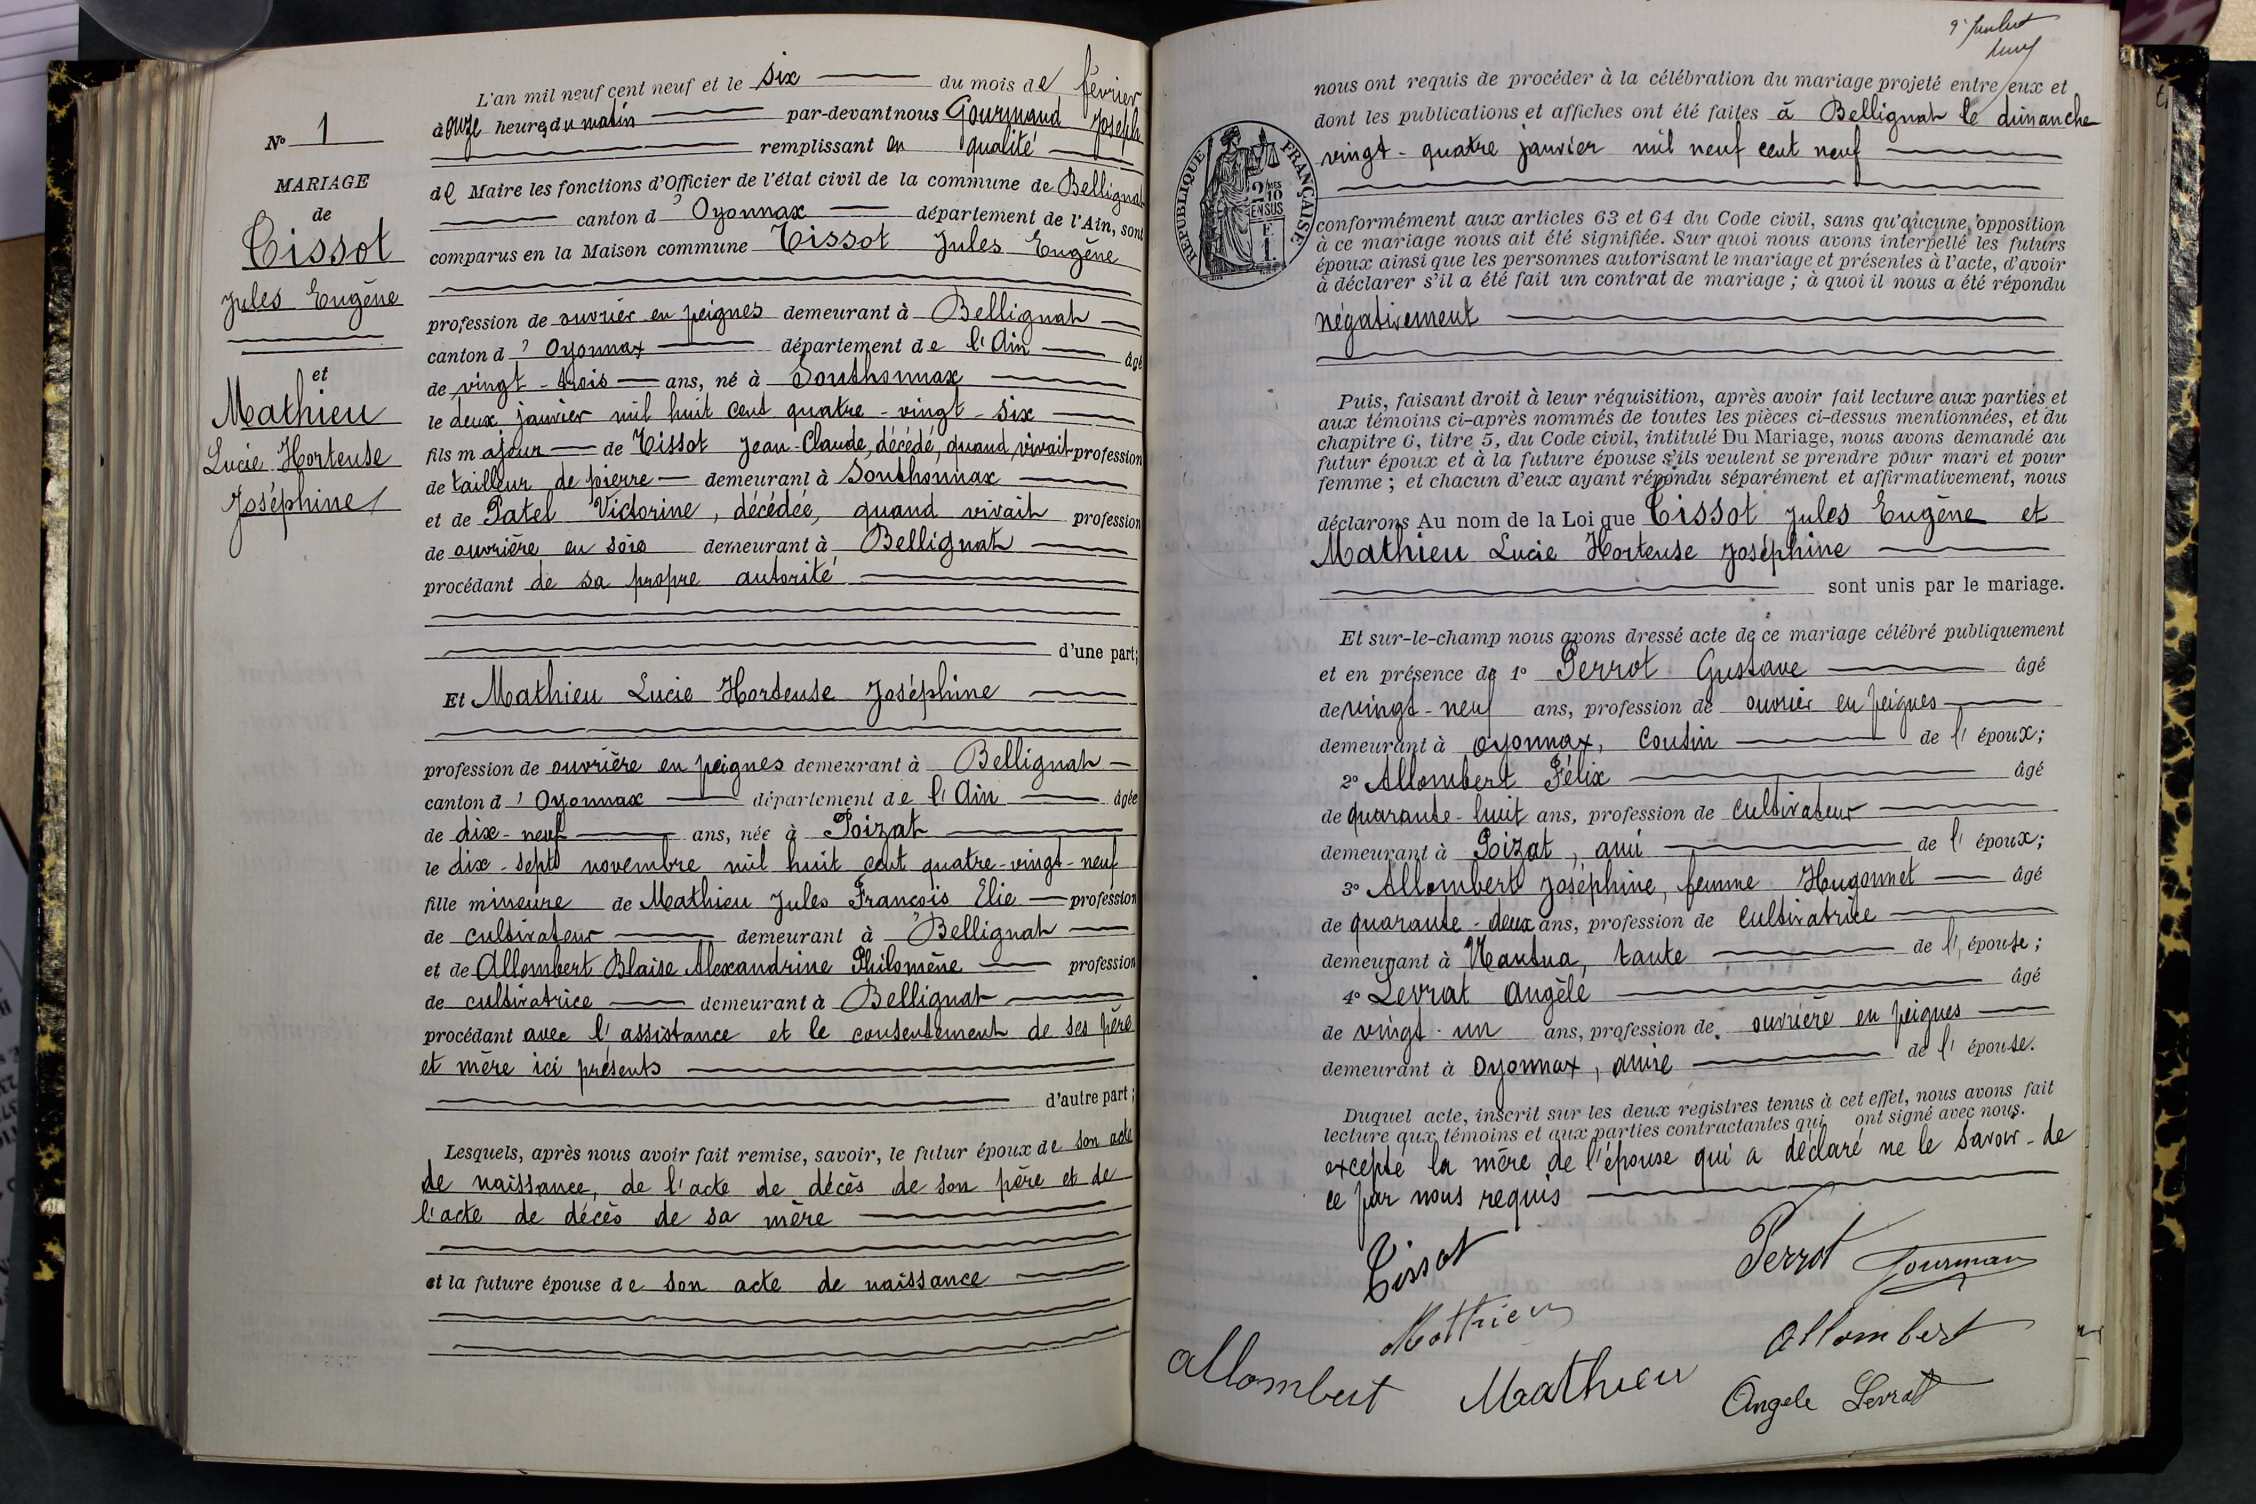 N° 1
MARIAGE
de
Tissot
Jules Eugène
et
Mathieu
Lucie Hortense
Joséphine
L'an mil neuf cent neuf et le six du mois de février
à onze heures du matin par-devant nous Gourmand Joseph
remplissant en qualité
de Maire les fonctions d'Officier de l'état civil de la commune de Bellignat
canton d'Oyonnax département de l'Ain, sont
comparus en la Maison commune Tissot Jules Eugène
profession de ouvrier en peignes demeurant à Bellignat
canton d'Oyonnax département de l'Ain âgé
de vingt-trois ans, né à Sonthonnax
le deux janvier mil huit cent quatre-vingt-six
fils majeur de Tissot Jean-Claude, décédé, quand vivait profession
de tailleur de pierre demeurant à Sonthonnax
et de Patel Victorine, décédée, quand vivait profession
de ouvrière en soie demeurant à Bellignat
procédant de sa propre autorité
d'une part;
Et Mathieu Lucie Hortense Joséphine
profession de ouvrière en peignes demeurant à Bellignat
canton d'Oyonnax département de l'Ain âgée
de dix-neuf ans, née à Poizat
le dix-sept novembre mil huit cent quatre-vingt-neuf
fille mineure de Mathieu Jules François Elie profession
de cultivateur demeurant à Bellignat
et de Allombert Blaise Alexandrine Philomène profession
de cultivatrice demeurant à Bellignat
procédant avec l'assistance et le consentement de ses père
et mère ici présents
d'autre part;
Lesquels, après nous avoir fait remise, savoir, le futur époux de son acte
de naissance, de l'acte de décès de son père et de
l'acte de décès de sa mère
et la future épouse de son acte de naissance
nous ont requis de procéder à la célébration du mariage projeté entre eux et
dont les publications et affiches ont été faites à Bellignat le dimanche
vingt-quatre janvier mil neuf cent neuf
RÉPUBLIQUE FRANÇAISE
2/10 MES
EN SUS
F
1
conformément aux articles 63 et 64 du Code civil, sans qu'aucune opposition
à ce mariage nous ait été signifiée. Sur quoi nous avons interpellé les futurs
époux ainsi que les personnes autorisant le mariage et présentes à l'acte, d'avoir
à déclarer s'il a été fait un contrat de mariage; à quoi il nous a été répondu
négativement
Puis, faisant droit à leur réquisition, après avoir fait lecture aux parties et
aux témoins ci-après nommés de toutes les pièces ci-dessus mentionnées, et du
chapitre 6, titre 5, du Code civil, intitulé Du Mariage, nous avons demandé au
futur époux et à la future épouse s'ils veulent se prendre pour mari et pour
femme; et chacun d'eux ayant répondu séparément et affirmativement, nous
déclarons Au nom de la Loi que Tissot Jules Eugène et
Mathieu Lucie Hortense Joséphine
sont unis par le mariage.
Et sur-le-champ nous avons dressé acte de ce mariage célébré publiquement
et en présence de 1° Perrot Gustave âgé
de vingt-neuf ans, profession de ouvrier en peignes
demeurant à Oyonnax, cousin de l'époux;
2° Allombert Félix âgé
de quarante-huit ans, profession de cultivateur
demeurant à Poizat, ami de l'époux;
3° Allombert Joséphine, femme Hugonnet âgé
de quarante-deux ans, profession de cultivatrice
demeurant à Nantua, tante de l'épouse;
4° Levrat Angèle âgé
de vingt-un ans, profession de ouvrière en peignes
demeurant à Oyonnax, amie de l'épouse.
Duquel acte, inscrit sur les deux registres tenus à cet effet, nous avons fait
lecture aux témoins et aux parties contractantes qui ont signé avec nous.
excepté la mère de l'épouse qui a déclaré ne le savoir - de
ce par nous requis
Tissot
Perrot Gourmand
Mathieu
Allombert
Allombert Mathieu
Angele Levrat